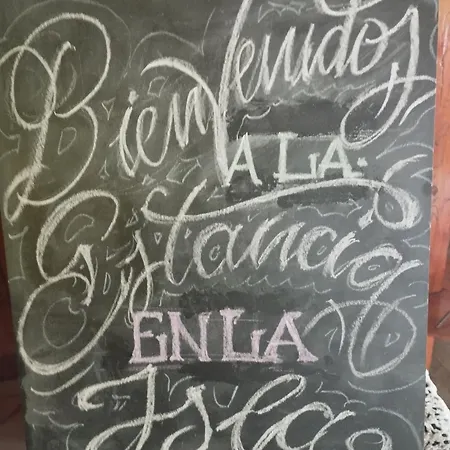 Bienvenidos
A LA
Estancia
EN LA
Isla